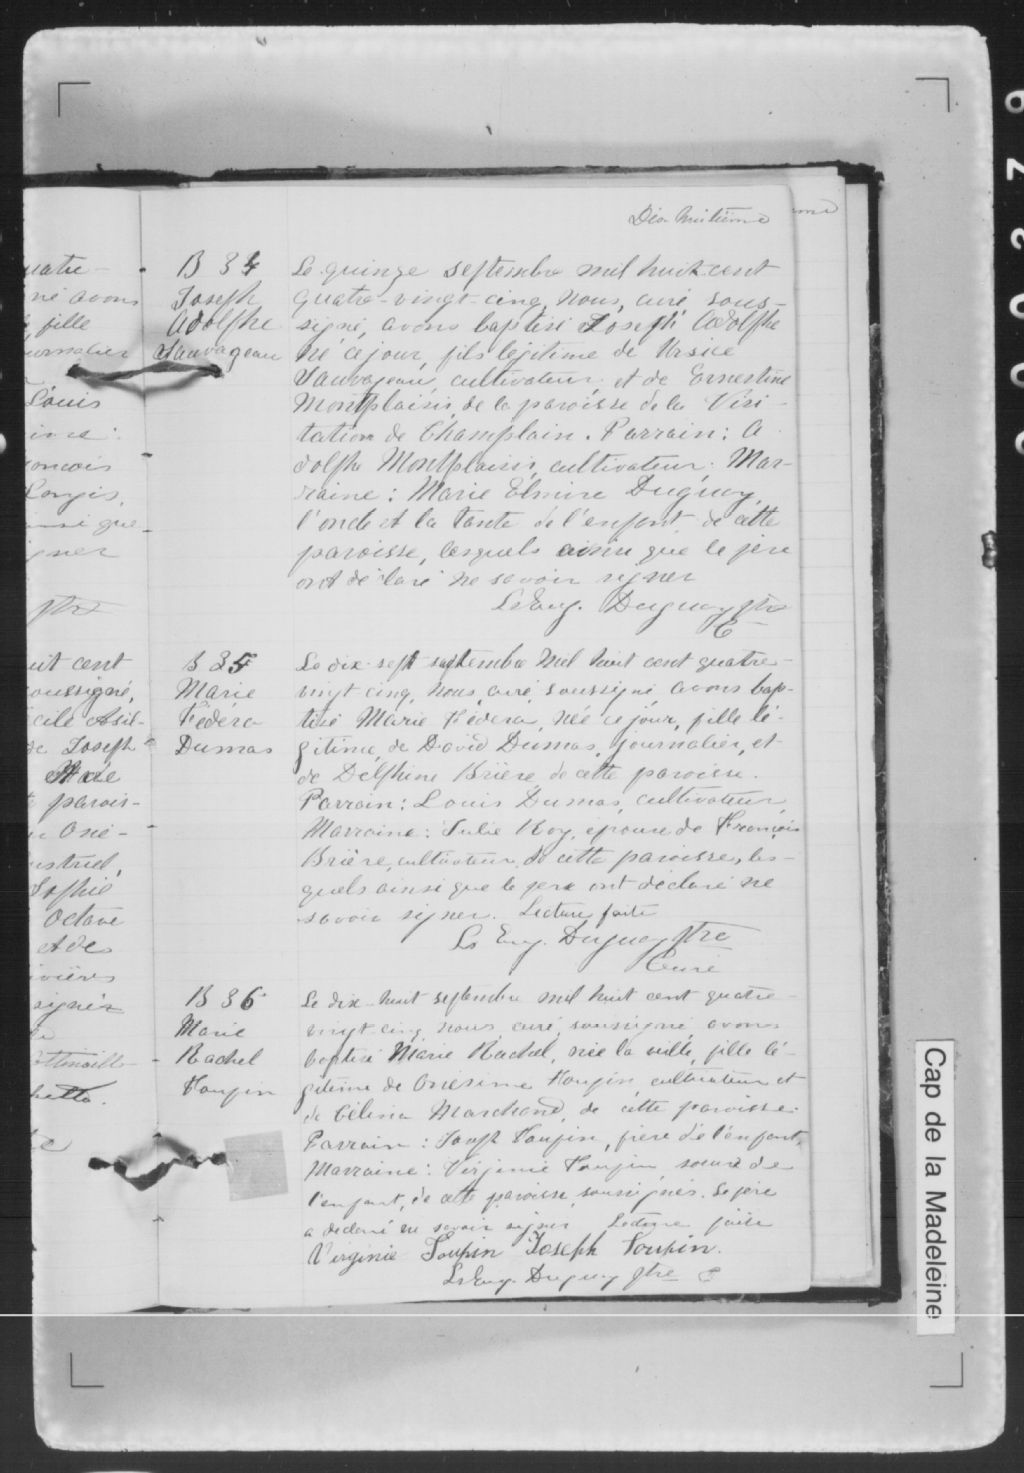 Dix huitième
B 34
Joseph
Adolphe
Sauvageau
Le quinze septembre mil huit cent
quatre-vingt-cinq, nous, curé sous-
signé, avons baptisé Joseph Adolphe
né ce jour, fils légitime de Ursice
Sauvageau, cultivateur, et de Ernestine
Montplaisir, de la paroisse de la Visi-
tation de Champlain. Parrain: A
dolphe Montplaisir, cultivateur. Mar-
raine: Marie Elmire Duguay,
l'oncle et la tante de l'enfant, de cette
paroisse, lesquels ainsi que le père
ont déclaré ne savoir signer
Ls Eug. Duguay Ptre
C
B 35
Marie
Fédéra
Dumas
Le dix-sept septembre mil huit cent quatre-
vingt cinq, nous, curé soussigné avons bap-
tisé Marie Fédera, née ce jour, fille lé-
gitime de David Dumas, journalier, et
de Delphine Brière, de cette paroisse.
Parrain: Louis Dumas, cultivateur,
Marraine: Julie Roy, épouse de François
Brière, cultivateur, de cette paroisse, les-
quels ainsi que le père ont déclaré ne
savoir signer. Lecture faite
Ls Eug. Duguay Ptre
Curé
B 36
Marie
Rachel
Toupin
Le dix-huit septembre mil huit cent quatre-
vingt-cinq, nous, curé, soussigné, avons
baptisé Marie Rachel, née la veille, fille lé-
gitime de Onésime Toupin, cultivateur et
de Célina Marchand, de cette paroisse.
Parrain: Joseph Toupin, frère de l'enfant,
Marraine: Virginie Toupin, soeur de
l'enfant, de cette paroisse, soussignés. Le père
a déclaré ne savoir signer. Lecture faite
Virginie Toupin Joseph Toupin.
Ls Eug. Duguay Ptre C
Cap de la Madeleine